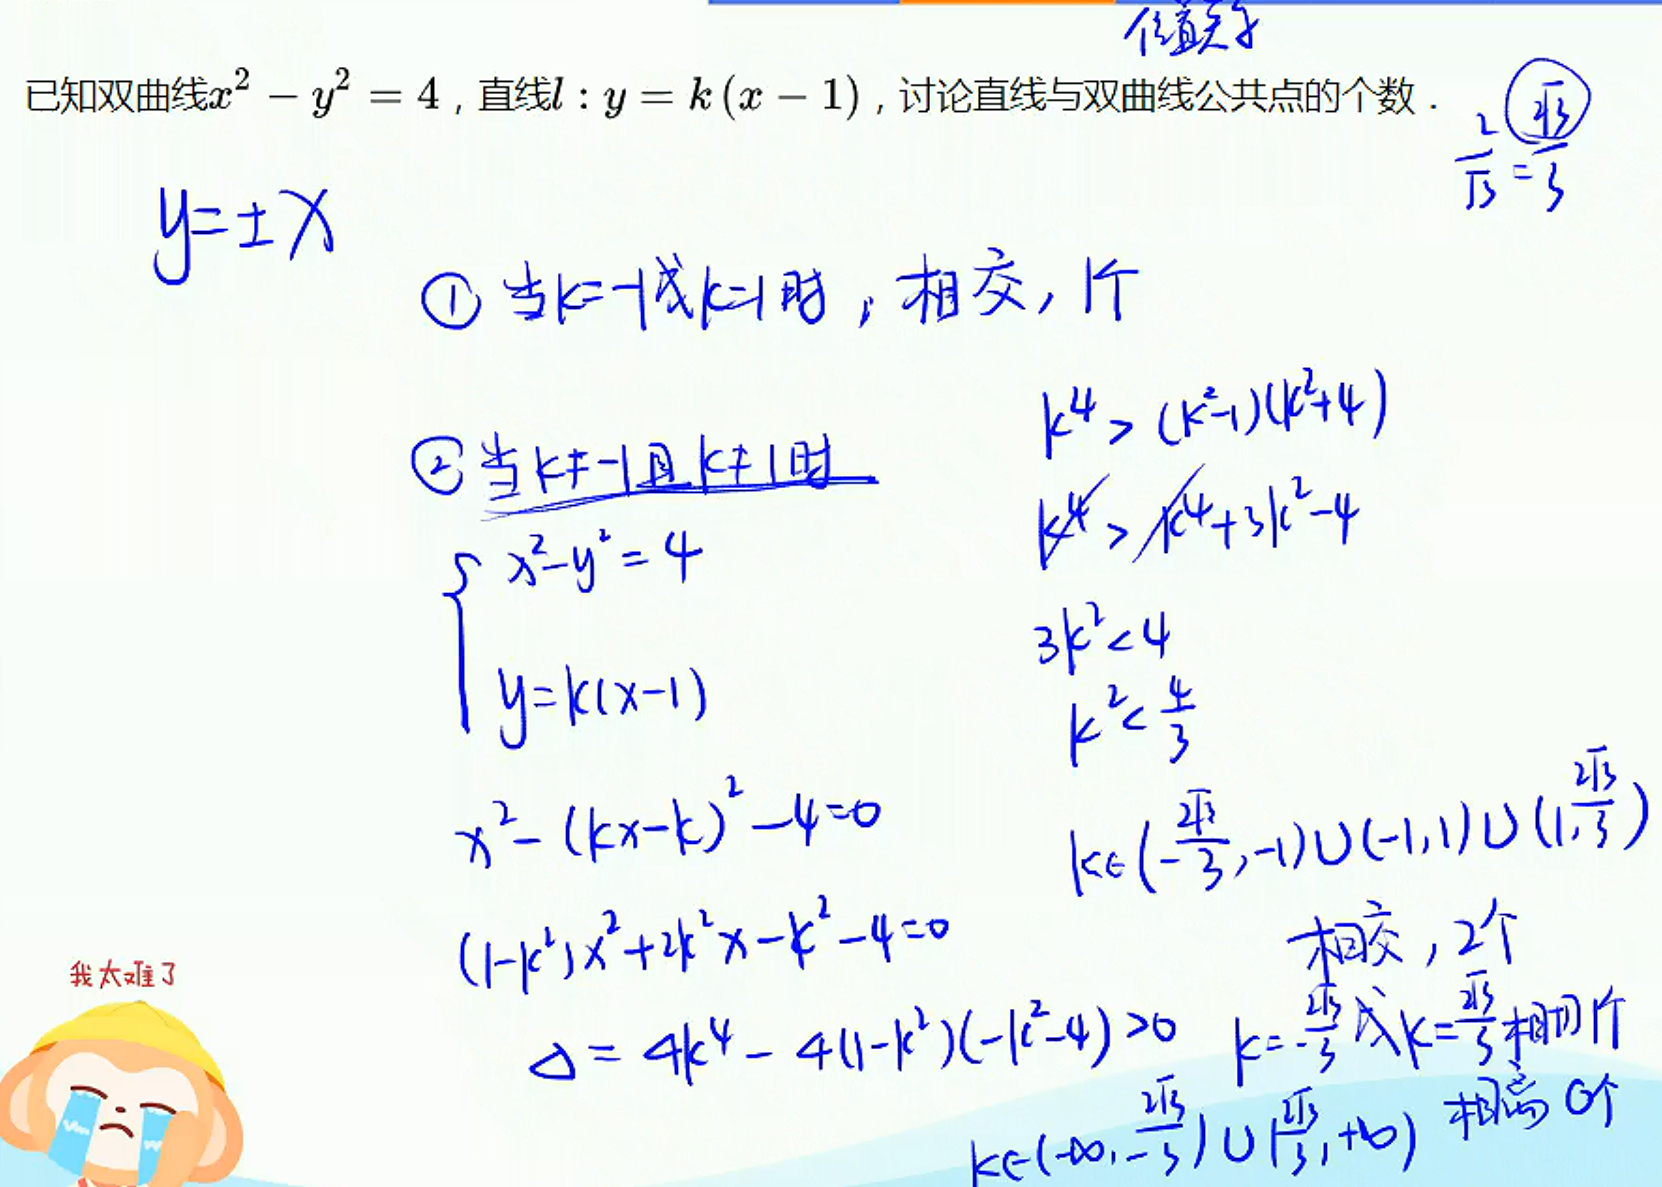 位置关系
已知双曲线x² − y² = 4，直线l : y = k (x − 1)，讨论直线与双曲线公共点的个数．
2/√3 = 2√3/3
y=±x
① 当k=-1或k=1时，相交，1个
② 当k≠-1且k≠1时
x²-y²=4
y=k(x-1)
x²-(kx-k)²-4=0
(1-k²)x²+2k²x-k²-4=0
Δ=4k⁴-4(1-k²)(-k²-4)>0
k⁴>(k²-1)(k²+4)
k⁴>k⁴+3k²-4
3k²<4
k²<4/3
k∈(-2√3/3,-1)∪(-1,1)∪(1,2√3/3)
相交，2个
k=-2√3/3或k=2√3/3相切1个
k∈(-∞,-2√3/3)∪(2√3/3,+∞) 相离0个
我太难了